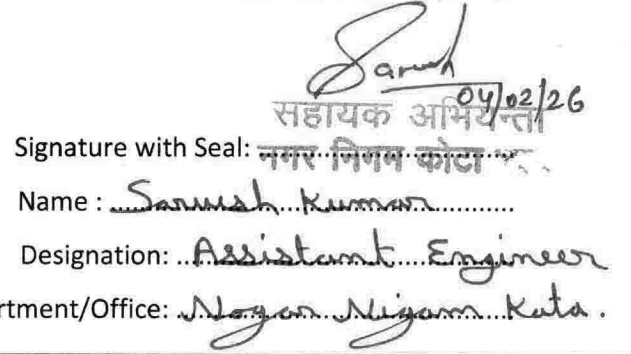 Sarvesh
04/02/26
सहायक अभियन्ता
Signature with Seal: नगर निगम कोटा
Name : Sarvesh Kumar
Designation: Assistant Engineer
rtment/Office: Nagar Nigam Kota.